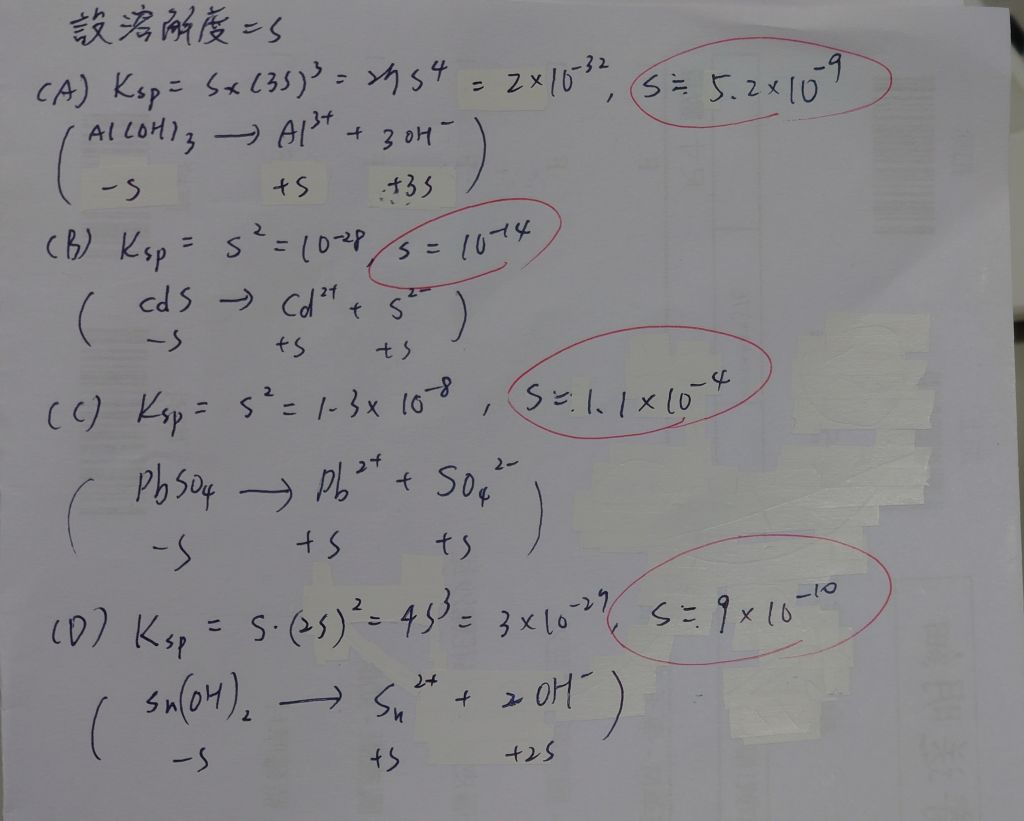 設溶解度=S
(A) Ksp = S×(3S)³ = 27S⁴ = 2×10⁻³², S≒5.2×10⁻⁹
(Al(OH)₃ → Al³⁺ + 3OH⁻)
-S +S +3S
(B) Ksp = S² = 10⁻²⁸, S = 10⁻¹⁴
(CdS → Cd²⁺ + S²⁻)
-S +S +S
(C) Ksp = S² = 1.3×10⁻⁸, S≒1.1×10⁻⁴
(PbSO₄ → Pb²⁺ + SO₄²⁻)
-S +S +S
(D) Ksp = S·(2S)² = 4S³ = 3×10⁻²⁷, S≒9×10⁻¹⁰
(Sn(OH)₂ → Sn²⁺ + 2OH⁻)
-S +S +2S